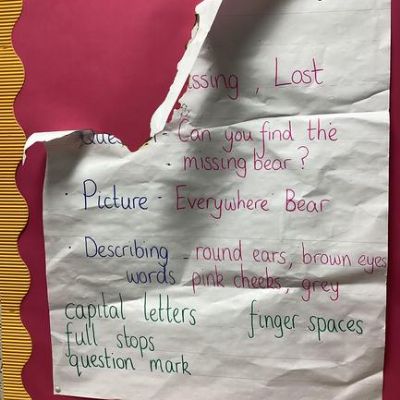 issing, Lost
Que - Can you find the
missing bear?
· Picture - Everywhere Bear
· Describing - round ears, brown eyes
words pink cheeks, grey
capital letters finger spaces
full stops
question mark